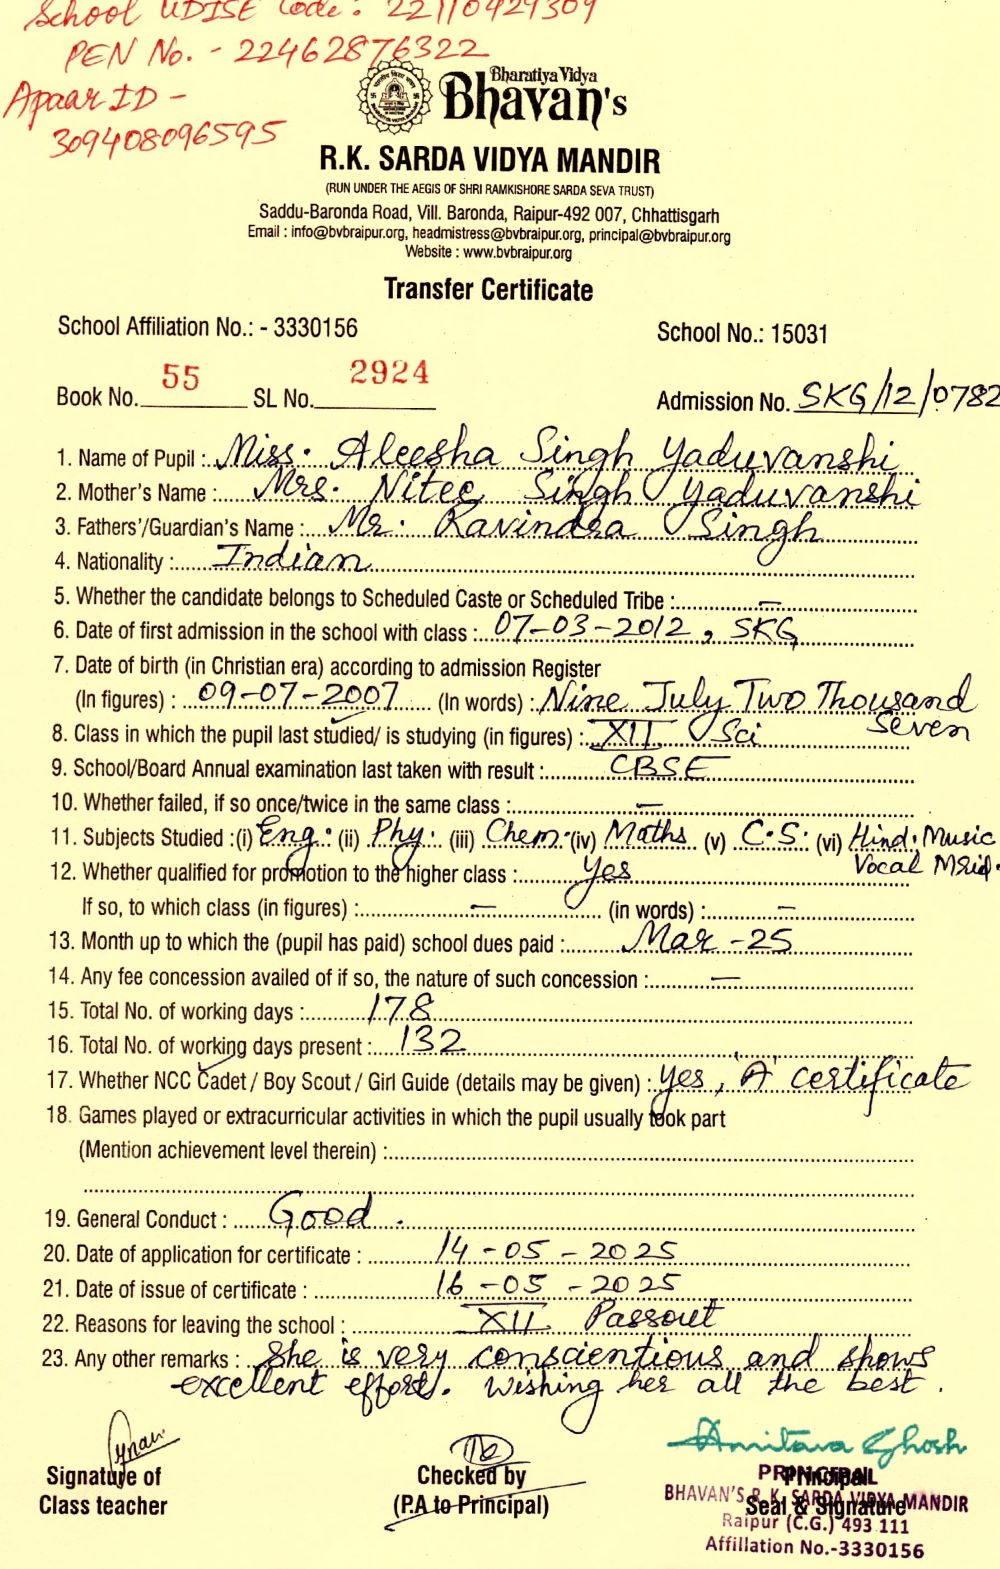 School UDISE Code : 22110429309
PEN No. - 22462876322
Apaar ID -
309408096595
Bharatiya Vidya
Bhavan's
R.K. SARDA VIDYA MANDIR
(RUN UNDER THE AEGIS OF SHRI RAMKISHORE SARDA SEVA TRUST)
Saddu-Baronda Road, Vill. Baronda, Raipur-492 007, Chhattisgarh
Email : info@bvbraipur.org, headmistress@bvbraipur.org, principal@bvbraipur.org
Website : www.bvbraipur.org
Transfer Certificate
School Affiliation No.: - 3330156 School No.: 15031
Book No. 55 SL No. 2924 Admission No. SKG/12/0782
1. Name of Pupil : Miss. Aleesha Singh Yaduvanshi
2. Mother's Name : Mrs. Nitee Singh Yaduvanshi
3. Fathers'/Guardian's Name : Mr. Ravindra Singh
4. Nationality : Indian
5. Whether the candidate belongs to Scheduled Caste or Scheduled Tribe : —
6. Date of first admission in the school with class : 07-03-2012, SKG
7. Date of birth (in Christian era) according to admission Register
(In figures) : 09-07-2007 (In words) : Nine July Two Thousand
Seven
8. Class in which the pupil last studied/ is studying (in figures) : XII Sci
9. School/Board Annual examination last taken with result : CBSE
10. Whether failed, if so once/twice in the same class : —
11. Subjects Studied :(i) Eng. (ii) Phy. (iii) Chem. (iv) Maths (v) C.S. (vi) Hind. Music
Vocal Mrid.
12. Whether qualified for promotion to the higher class : Yes
If so, to which class (in figures) : — (in words) : —
13. Month up to which the (pupil has paid) school dues paid : Mar -25
14. Any fee concession availed of if so, the nature of such concession : —
15. Total No. of working days : 178
16. Total No. of working days present : 132
17. Whether NCC Cadet / Boy Scout / Girl Guide (details may be given) : Yes, 'A' certificate
18. Games played or extracurricular activities in which the pupil usually took part
(Mention achievement level therein) :
19. General Conduct : Good.
20. Date of application for certificate : 14-05-2025
21. Date of issue of certificate : 16-05-2025
22. Reasons for leaving the school : XII Passout
23. Any other remarks : She is very conscientious and shows
excellent effort. Wishing her all the best.
Amitava Ghosh
Signature of Checked by Principal
Class teacher (P.A to Principal) Seal & Signature
PRINCIPAL
BHAVAN'S R. K. SARDA VIDYA MANDIR
Raipur (C.G.) 493 111
Affillation No.-3330156